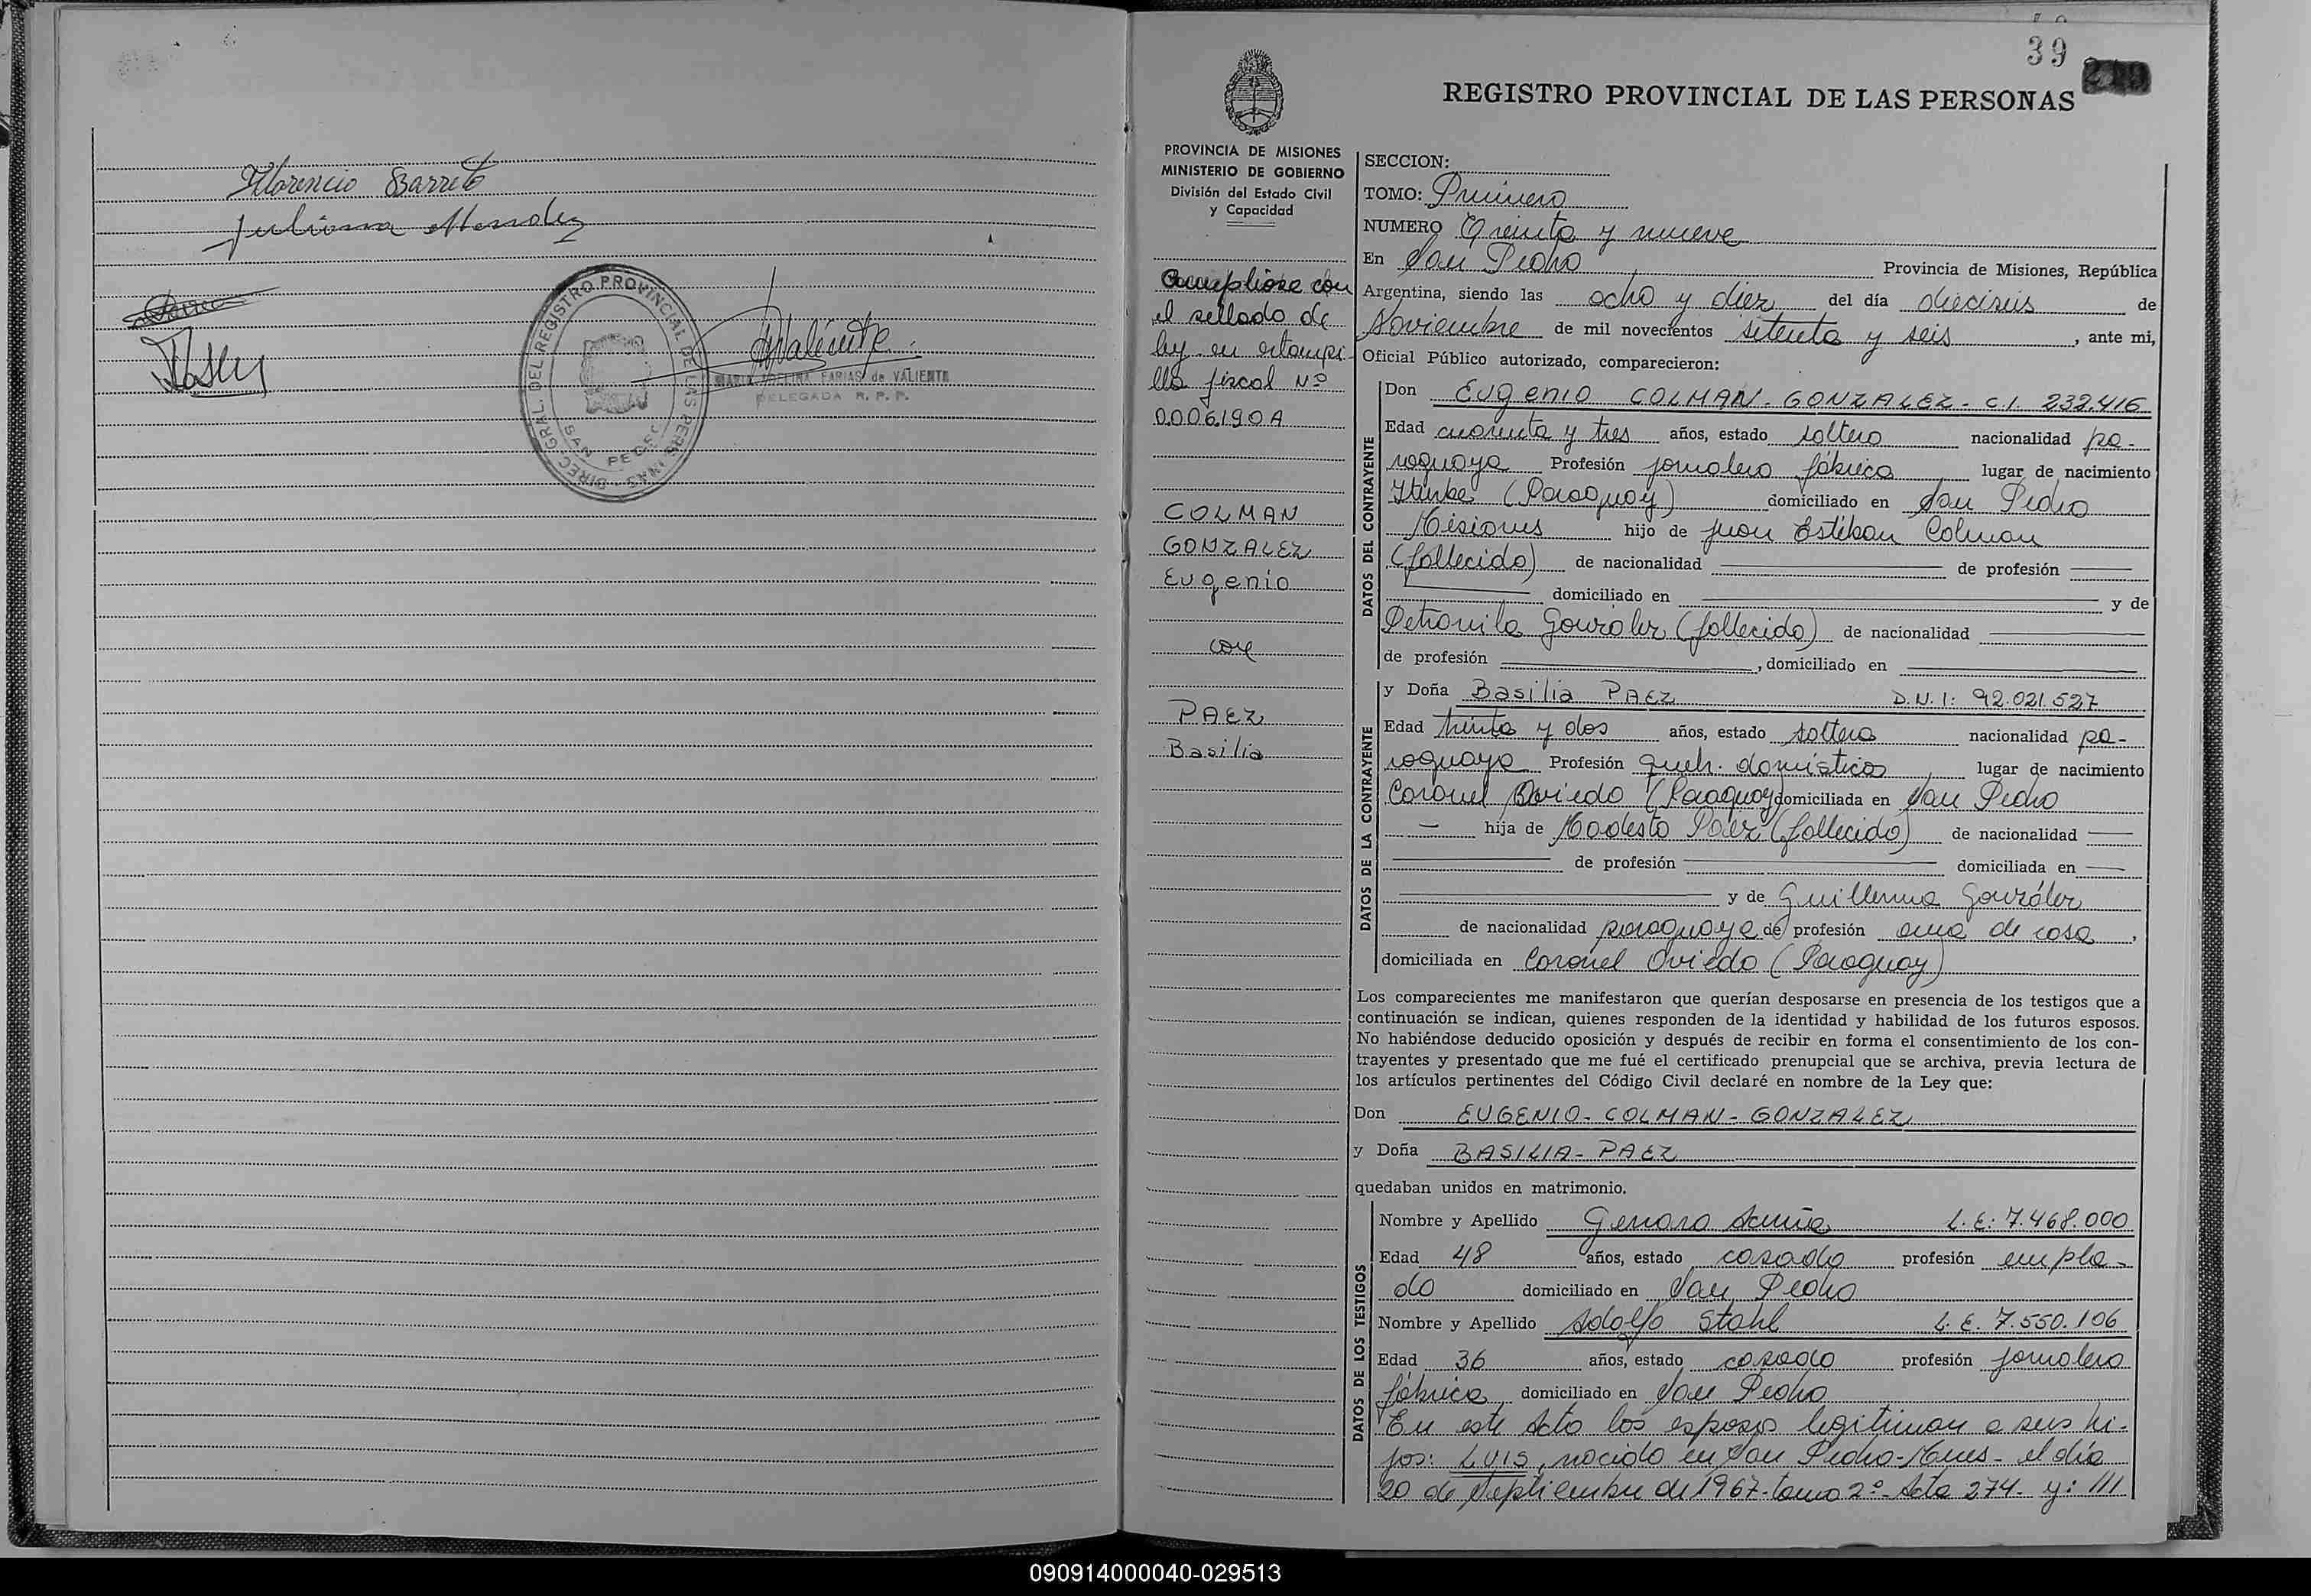 Florencio Barreto
Juliana Mendez
DIREC. GRAL. DEL REGISTRO PROVINCIAL DE LAS PERSONAS
SAN PEDRO
Valiente
MARIA ADELINA FARIAS de VALIENTE
DELEGADA R. P. P.
39
REGISTRO PROVINCIAL DE LAS PERSONAS
PROVINCIA DE MISIONES
MINISTERIO DE GOBIERNO
División del Estado Civil
y Capacidad
Cumplióse con
el sellado de
ley en estampi-
lla fiscal Nº
0006190A
COLMAN
GONZALEZ
Eugenio
con
PAEZ
Basilia
SECCION:
TOMO: Primero
NUMERO Treinta y nueve
En San Pedro Provincia de Misiones, República
Argentina, siendo las ocho y diez del día dieciseis de
Noviembre de mil novecientos setenta y seis, ante mi,
Oficial Público autorizado, comparecieron:
DATOS DEL CONTRAYENTE
Don Eugenio COLMAN-GONZALEZ- C.I. 232.416
Edad cuarenta y tres años, estado soltero nacionalidad pa-
raguaya Profesión jornalero fábrica lugar de nacimiento
(Paraguay) domiciliado en San Pedro
Misiones hijo de Juan Estéban Colman
(fallecido) de nacionalidad de profesión
domiciliado en y de
Petronila González (fallecida) de nacionalidad
de profesión , domiciliado en
DATOS DE LA CONTRAYENTE
y Doña Basilia PAEZ D.N.I: 92.021.527
Edad treinta y dos años, estado soltera nacionalidad pa-
raguaya Profesión queh. domésticos lugar de nacimiento
Coronel Oviedo (Paraguay) domiciliada en San Pedro
— hija de Modesto Paez (fallecido) de nacionalidad
de profesión domiciliada en
y de Guillerma González
de nacionalidad paraguaya de profesión ama de casa,
domiciliada en Coronel Oviedo (Paraguay)
Los comparecientes me manifestaron que querían desposarse en presencia de los testigos que a
continuación se indican, quienes responden de la identidad y habilidad de los futuros esposos.
No habiéndose deducido oposición y después de recibir en forma el consentimiento de los con-
trayentes y presentado que me fué el certificado prenupcial que se archiva, previa lectura de
los artículos pertinentes del Código Civil declaré en nombre de la Ley que:
Don EUGENIO-COLMAN-GONZALEZ
y Doña BASILIA-PAEZ
quedaban unidos en matrimonio.
DATOS DE LOS TESTIGOS
Nombre y Apellido Genaro Acuña L.E: 7.468.000
Edad 48 años, estado casado profesión emplea-
do domiciliado en San Pedro
Nombre y Apellido Adolfo Stahl L.E. 7.550.106
Edad 36 años, estado casado profesión jornalero
fábrica domiciliado en San Pedro
En este Acto los esposos legitiman a sus hi-
jos: LUIS, nacido en San Pedro-Mnes- el día
20 de Septiembre de 1967-tomo 2º-Acta 274- y: ///
090914000040-029513